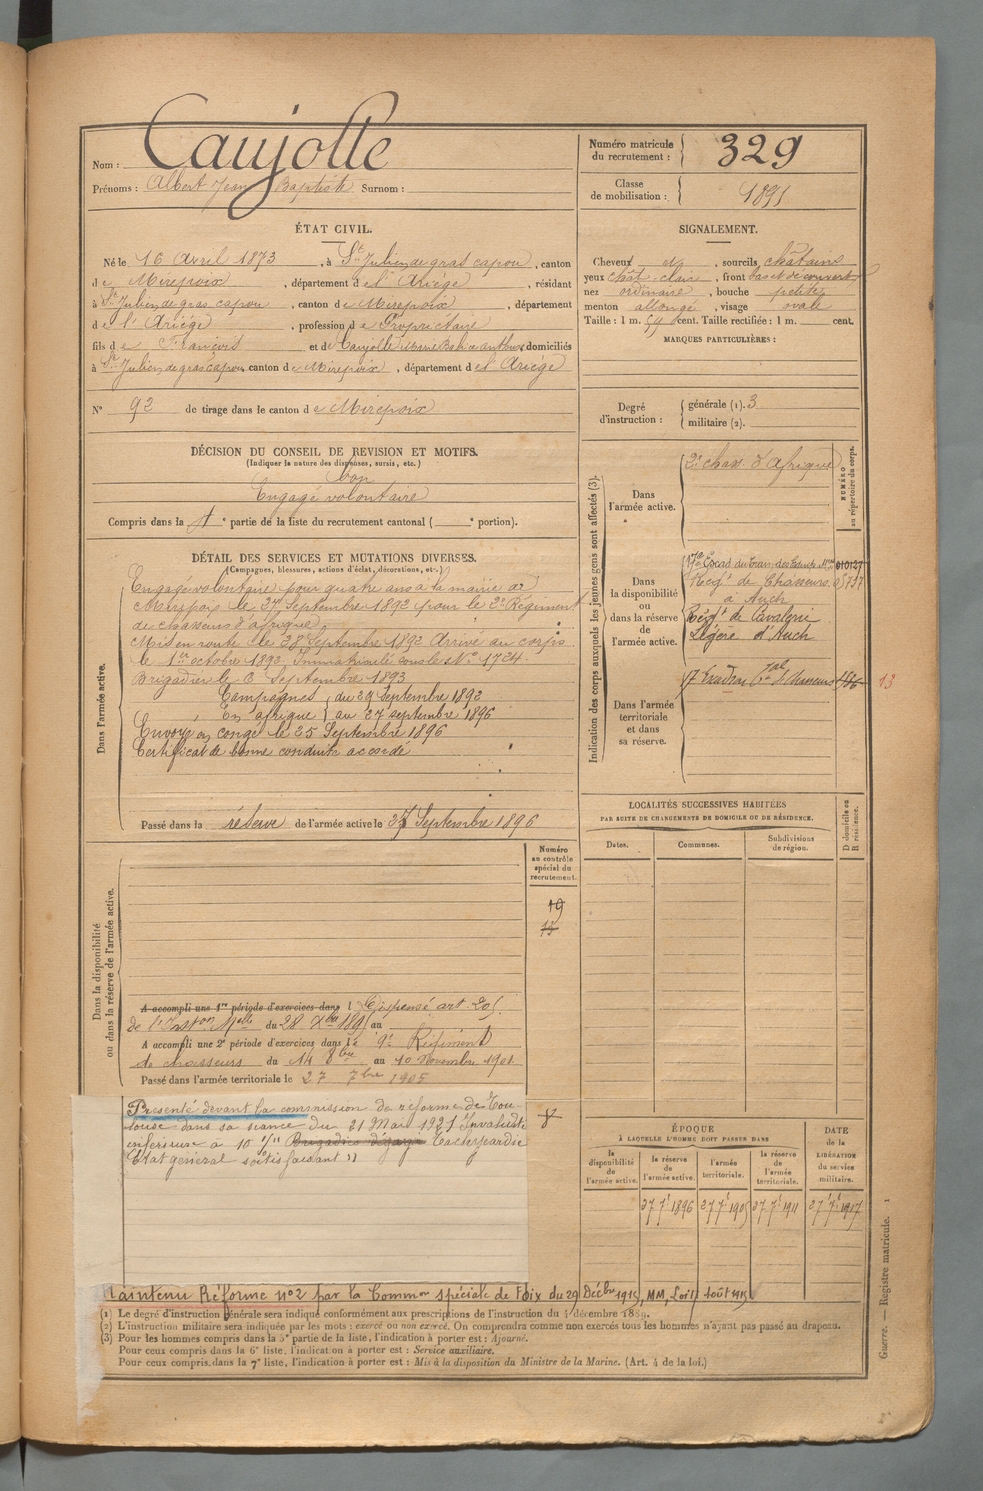 Nom : Caujolle
Prénoms : Albert Jean Baptiste Surnom :
Numéro matricule du recrutement : 329
Classe de mobilisation : 1891
ÉTAT CIVIL.
Né le 16 Avril 1873, à St Julien de gras capou, canton
de Mirepoix, département de l'Ariège, résidant
à St Julien de gras capou, canton de Mirepoix, département
de l'Ariège, profession de Propriétaire
fils de François et de Caujolle Marie domiciliés
à St Julien de gras capou, canton de Mirepoix, département de l'Ariège
N° 92 de tirage dans le canton de Mirepoix
SIGNALEMENT.
Cheveux et, sourcils châtains
yeux chât-claire, front bas et découvert
nez ordinaire, bouche petite
menton allongé, visage ovale
Taille : 1 m. 59 cent. Taille rectifiée : 1 m. cent.
MARQUES PARTICULIÈRES :
Degré d'instruction : générale (1). 3
militaire (2).
DÉCISION DU CONSEIL DE REVISION ET MOTIFS.
(Indiquer la nature des dispenses, sursis, etc.)
bon
Engagé volontaire
Compris dans la 1e partie de la liste du recrutement cantonal ( e portion).
DÉTAIL DES SERVICES ET MUTATIONS DIVERSES.
(Campagnes, blessures, actions d'éclat, décorations, etc.)
Dans l'armée active.
Engagé volontaire pour quatre ans à la mairie de
Mirepoix le 27 Septembre 1892 pour le 2e Régiment
de chasseurs d'afrique
Mis en route le 28 Septembre 1892 Arrivé au corps
le 1er octobre 1892, Immatriculé sous le No 1724.
Brigadier le Septembre 1893
Campagnes du 29 Septembre 1892
En afrique au 27 septembre 1896
Envoyé en congé le 25 Septembre 1896
Certificat de bonne conduite accordé
Passé dans la réserve de l'armée active le 27 Septembre 1896
Indication des corps auxquels les jeunes gens sont affectés (3).
NUMÉRO au répertoire du corps.
Dans l'armée active.
2e chass. d'Afrique
Dans la disponibilité ou dans la réserve de l'armée active.
17e Escad du train des Equip. Mres 010127
Régt de Chasseurs 05737
à Auch
Régt de Cavalerie
Légère d'Auch
Dans l'armée territoriale et dans sa réserve.
17 Escadron tal de Chasseurs 13
LOCALITÉS SUCCESSIVES HABITÉES
PAR SUITE DE CHANGEMENTS DE DOMICILE OU DE RÉSIDENCE.
Dates. Communes. Subdivisions de région.
D domicile ou R résidence.
Dans la disponibilité ou dans la réserve de l'armée active.
Numéro au contrôle spécial du recrutement.
19
A accompli une 1re période d'exercices dans l Dispensé art. 20
de l'Inston Melle du 28 Xbre 1895 au
A accompli une 2e période d'exercices dans le 9e Régiment
de chasseurs du 14 8bre au 10 Novembre 1901
Passé dans l'armée territoriale le 27 7bre 1905
Présenté devant la commission de réforme de Tou-
louse dans sa séance du 21 Mai 1927 Invalidité
inférieure à 10 % Tachycardie
Etat général satisfaisant »
ÉPOQUE
À LAQUELLE L'HOMME DOIT PASSER DANS
la disponibilité de l'armée active. la réserve de l'armée active. l'armée territoriale. la réserve de l'armée territoriale.
DATE de la LIBÉRATION du service militaire.
27 7e 1896 27 7e 1905 27 7e 1911 27 7e 1917
Maintenu Réforme n°2 par la Common spéciale de Foix du 29 Décbre 1915, MM, Loi Août 1915
(1) Le degré d'instruction générale sera indiqué conformément aux prescriptions de l'instruction du 4 décembre 1889.
(2) L'instruction militaire sera indiquée par les mots : exercé ou non exercé. On comprendra comme non exercés tous les hommes n'ayant pas passé au drapeau.
(3) Pour les hommes compris dans la 5e partie de la liste, l'indication à porter est : Ajourné.
Pour ceux compris dans la 6e liste, l'indication à porter est : Service auxiliaire.
Pour ceux compris dans la 7e liste, l'indication à porter est : Mis à la disposition du Ministre de la Marine. (Art. 4 de la loi.)
Guerre. — Registre matricule. 1